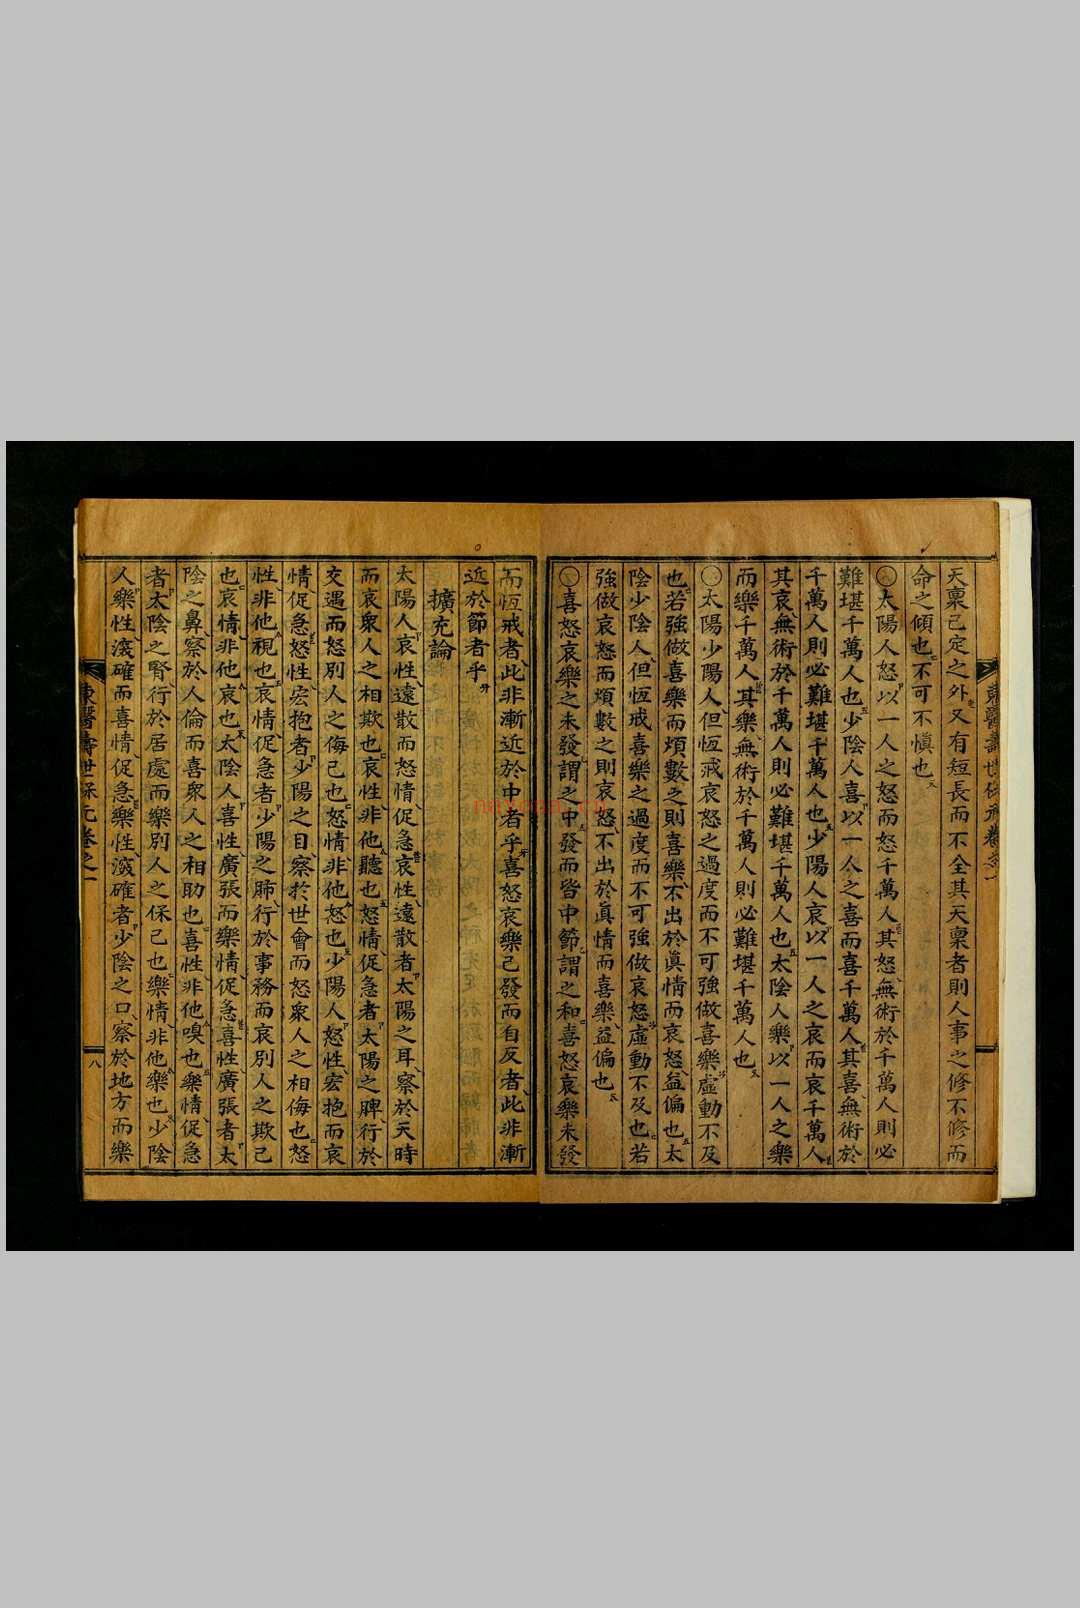 天禀已定之外又有短長而不全其天禀者則人事之修不修而
命之傾也不可不愼也
○太陽人怒以一人之怒而怒千萬人其怒無術於千萬人則必
難堪千萬人也少陰人喜以一人之喜而喜千萬人其喜無術於
千萬人則必難堪千萬人也少陽人哀以一人之哀而哀千萬人
其哀無術於千萬人則必難堪千萬人也太陰人樂以一人之樂
而樂千萬人其樂無術於千萬人則必難堪千萬人也
○太陽少陽人但恆戒哀怒之過度而不可強做喜樂虛動不及
也若強做喜樂而煩數之則喜樂不出於眞情而哀怒益偏也太
陰少陰人但恆戒喜樂之過度而不可強做哀怒虛動不及也若
強做哀怒而煩數之則哀怒不出於眞情而喜樂益偏也
○喜怒哀樂之未發謂之中發而皆中節謂之和喜怒哀樂未發
而恆戒者此非漸近於中者乎喜怒哀樂已發而自反者此非漸
近於節者乎
擴充論
太陽人哀性遠散而怒情促急哀性遠散者太陽之耳察於天時
而哀衆人之相欺也哀性非他聽也怒情促急者太陽之脾行於
交遇而怒別人之侮己也怒情非他怒也少陽人怒性宏抱而哀
情促急怒性宏抱者少陽之目察於世會而怒衆人之相侮也怒
性非他視也哀情促急者少陽之肺行於事務而哀別人之欺己
也哀情非他哀也太陰人喜性廣張而樂情促急喜性廣張者太
陰之鼻察於人倫而喜衆人之相助也喜性非他嗅也樂情促急
者太陰之腎行於居處而樂別人之保己也樂情非他樂也少陰
人樂性深確而喜情促急樂性深確者少陰之口察於地方而樂
東醫壽世保元卷之一
八